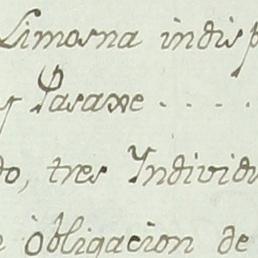 Limosna indisp
y Pasaxe . . . .
do, tres Individu
e obligacion de